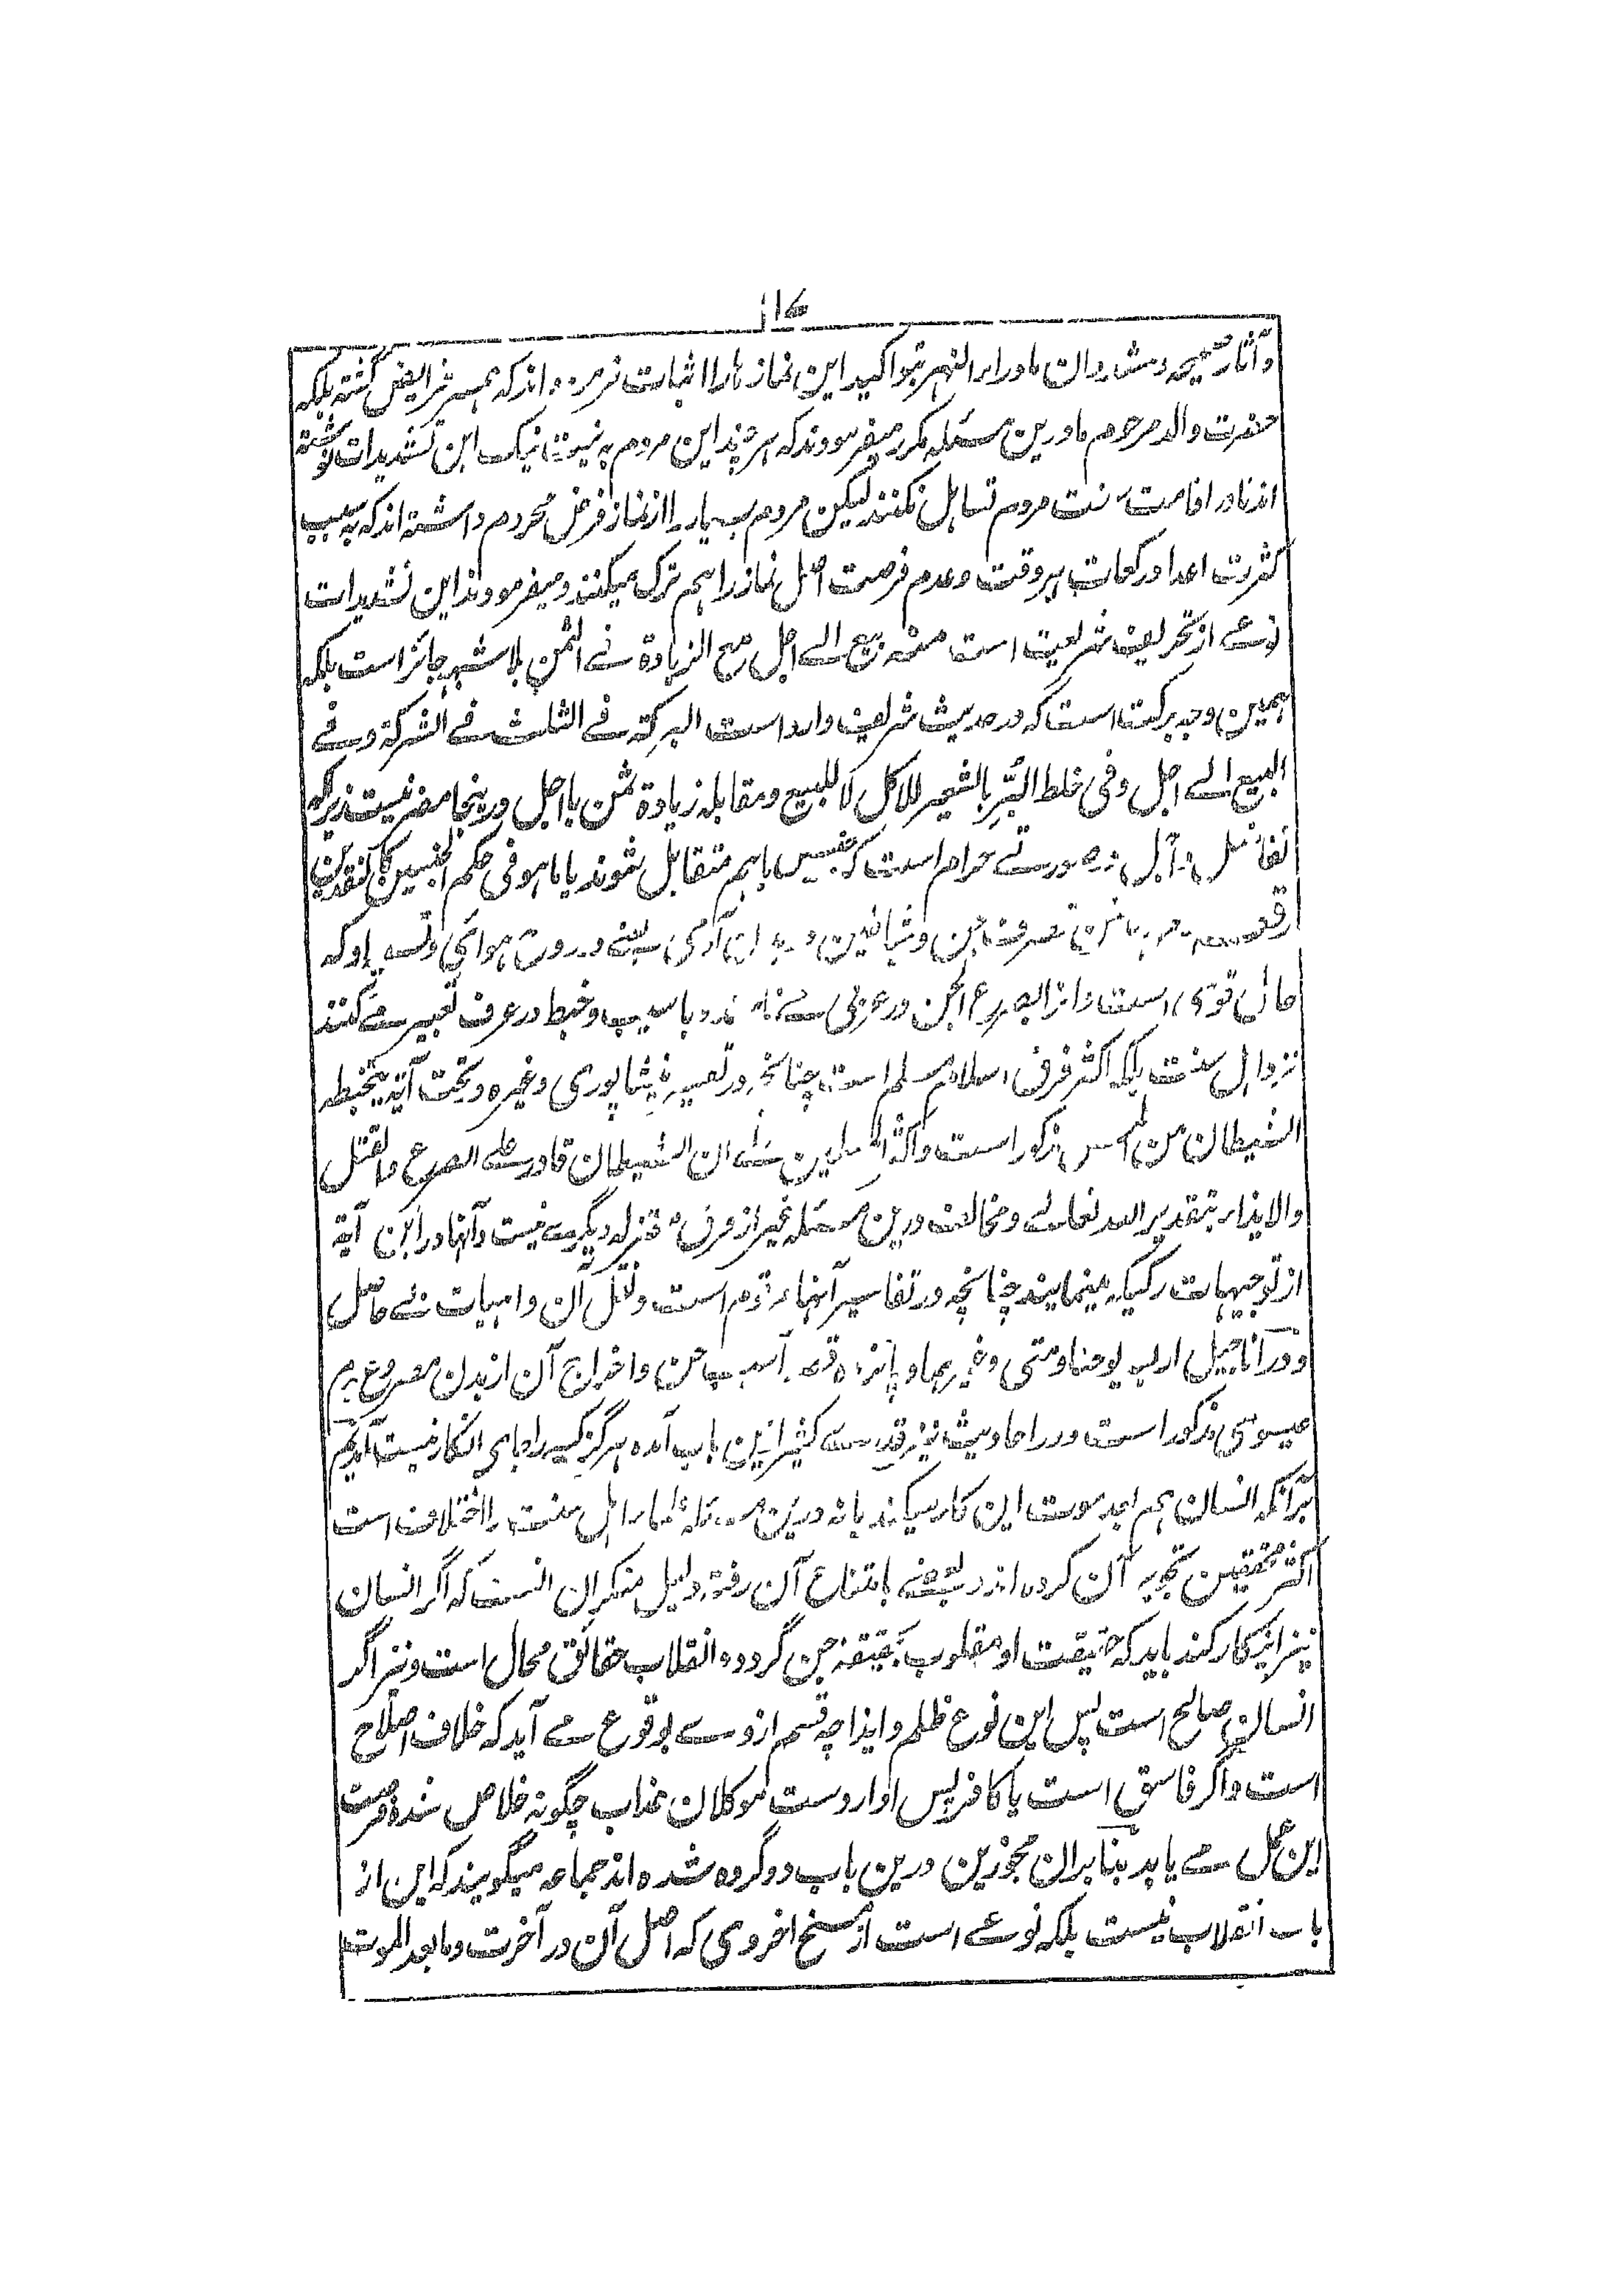 و آثار صحیحه و متشددان ماوراء النهر بتواکید این نماز ها را اثبات فرموده اند که همسر فرائض گشته بلکه
حضرت والد مرحوم ما درین مسئله مکرر میفرمودند که هر چند این مردم به نیت نیک این تشدیدات نوشته
اند تا در اقامت سنت مردم تساهل نکنند لیکن مردم بسیار را از نماز فرض محروم داشته اند که به سبب
کثرت اعداد رکعات هر وقت و عدم فرصت اصل نماز را هم ترک میکنند و میفرمودند این تشدیدات
نوعے از تحریف شریعت است مسئله بیع الے اجل مع الزیادة فے الثمن بلا شبهه جائز است بلکه
همین وجه برکت است که در حدیث شریف وارد است البرکة فے الثلث فے الشرکة و فے
البیع الے اجل و فی خلط البُرِّ بالشعیر للاکل لا للبیع و مقابله زیادة ثمن با اجل درینجا مضر نیست زیراکه
تفاضل و اجل در صورتے حرام است که جنسین باهم متقابل شوند یا ما هو فی حکم الجنسین کالنقدین
تصرف جن و شیاطین در بدن آدمی یعنے در روح هوائی و قسمے او که
حامل قوی است و آنرا بصرع الجن در عربی مے نامند و بآسیب و خبط در عرف تعبیر مے کنند
نزد اهل سنت بلکه اکثر فرق اسلام مسلم است چنانچه در تفسیر نیشاپوری و غیره و تحت آیة یتخبطه
الشیطان من المس مذکور است و اکثر المسلمین علے ان الشیطان قادر علے الصرع و القتل
و الایذاء بتقدیر الله تعالے و مخالف درین مسئله غیر از فرق معتزله دیگرے نیست و آنها در این آیة
از توجیهات رکیکه مینمایند چنانچه در تفاسیر آنها مرقوم است و نقل آن واهیات بے حاصل
و در اناجیل اربعه یوحنا و متی و غیرهما و پانزده قصه آسیب جن و اخراج آن از بدن مصروع بدم
عیسوی مذکور است و در احادیث نیز قدرے کثیر ازین باب آمده هرگز کسے را جای انکار نیست آمدیم
برآنکه انسان هم بعد موت این کار میکند یا نه درین مسئله علماء اهل سنت را اختلاف است
اکثر محققین تجویز آن کرده اند و بعضے بامتناع آن رفته دلیل منکران آنست که اگر انسان
نیز اینکار کند باید که حقیقت او مقلوب بحقیقة جن گردد و انقلاب حقائق محال است و نیز اگر
انسان صالح است پس این نوع ظلم و ایذا چه قسم ازوے بوقوع مے آید که خلاف اصلاح
است و اگر فاسق است یا کافر پس او از دست موکلان عذاب چگونه خلاص شده فرصت
این عمل مے یابد بنابران مجوزین درین باب دو گروه شده اند جماعه میگویند که این از
باب انقلاب نیست بلکه نوعے است از مسخ اخروی که اصل آن در آخرت و ما بعد الموت